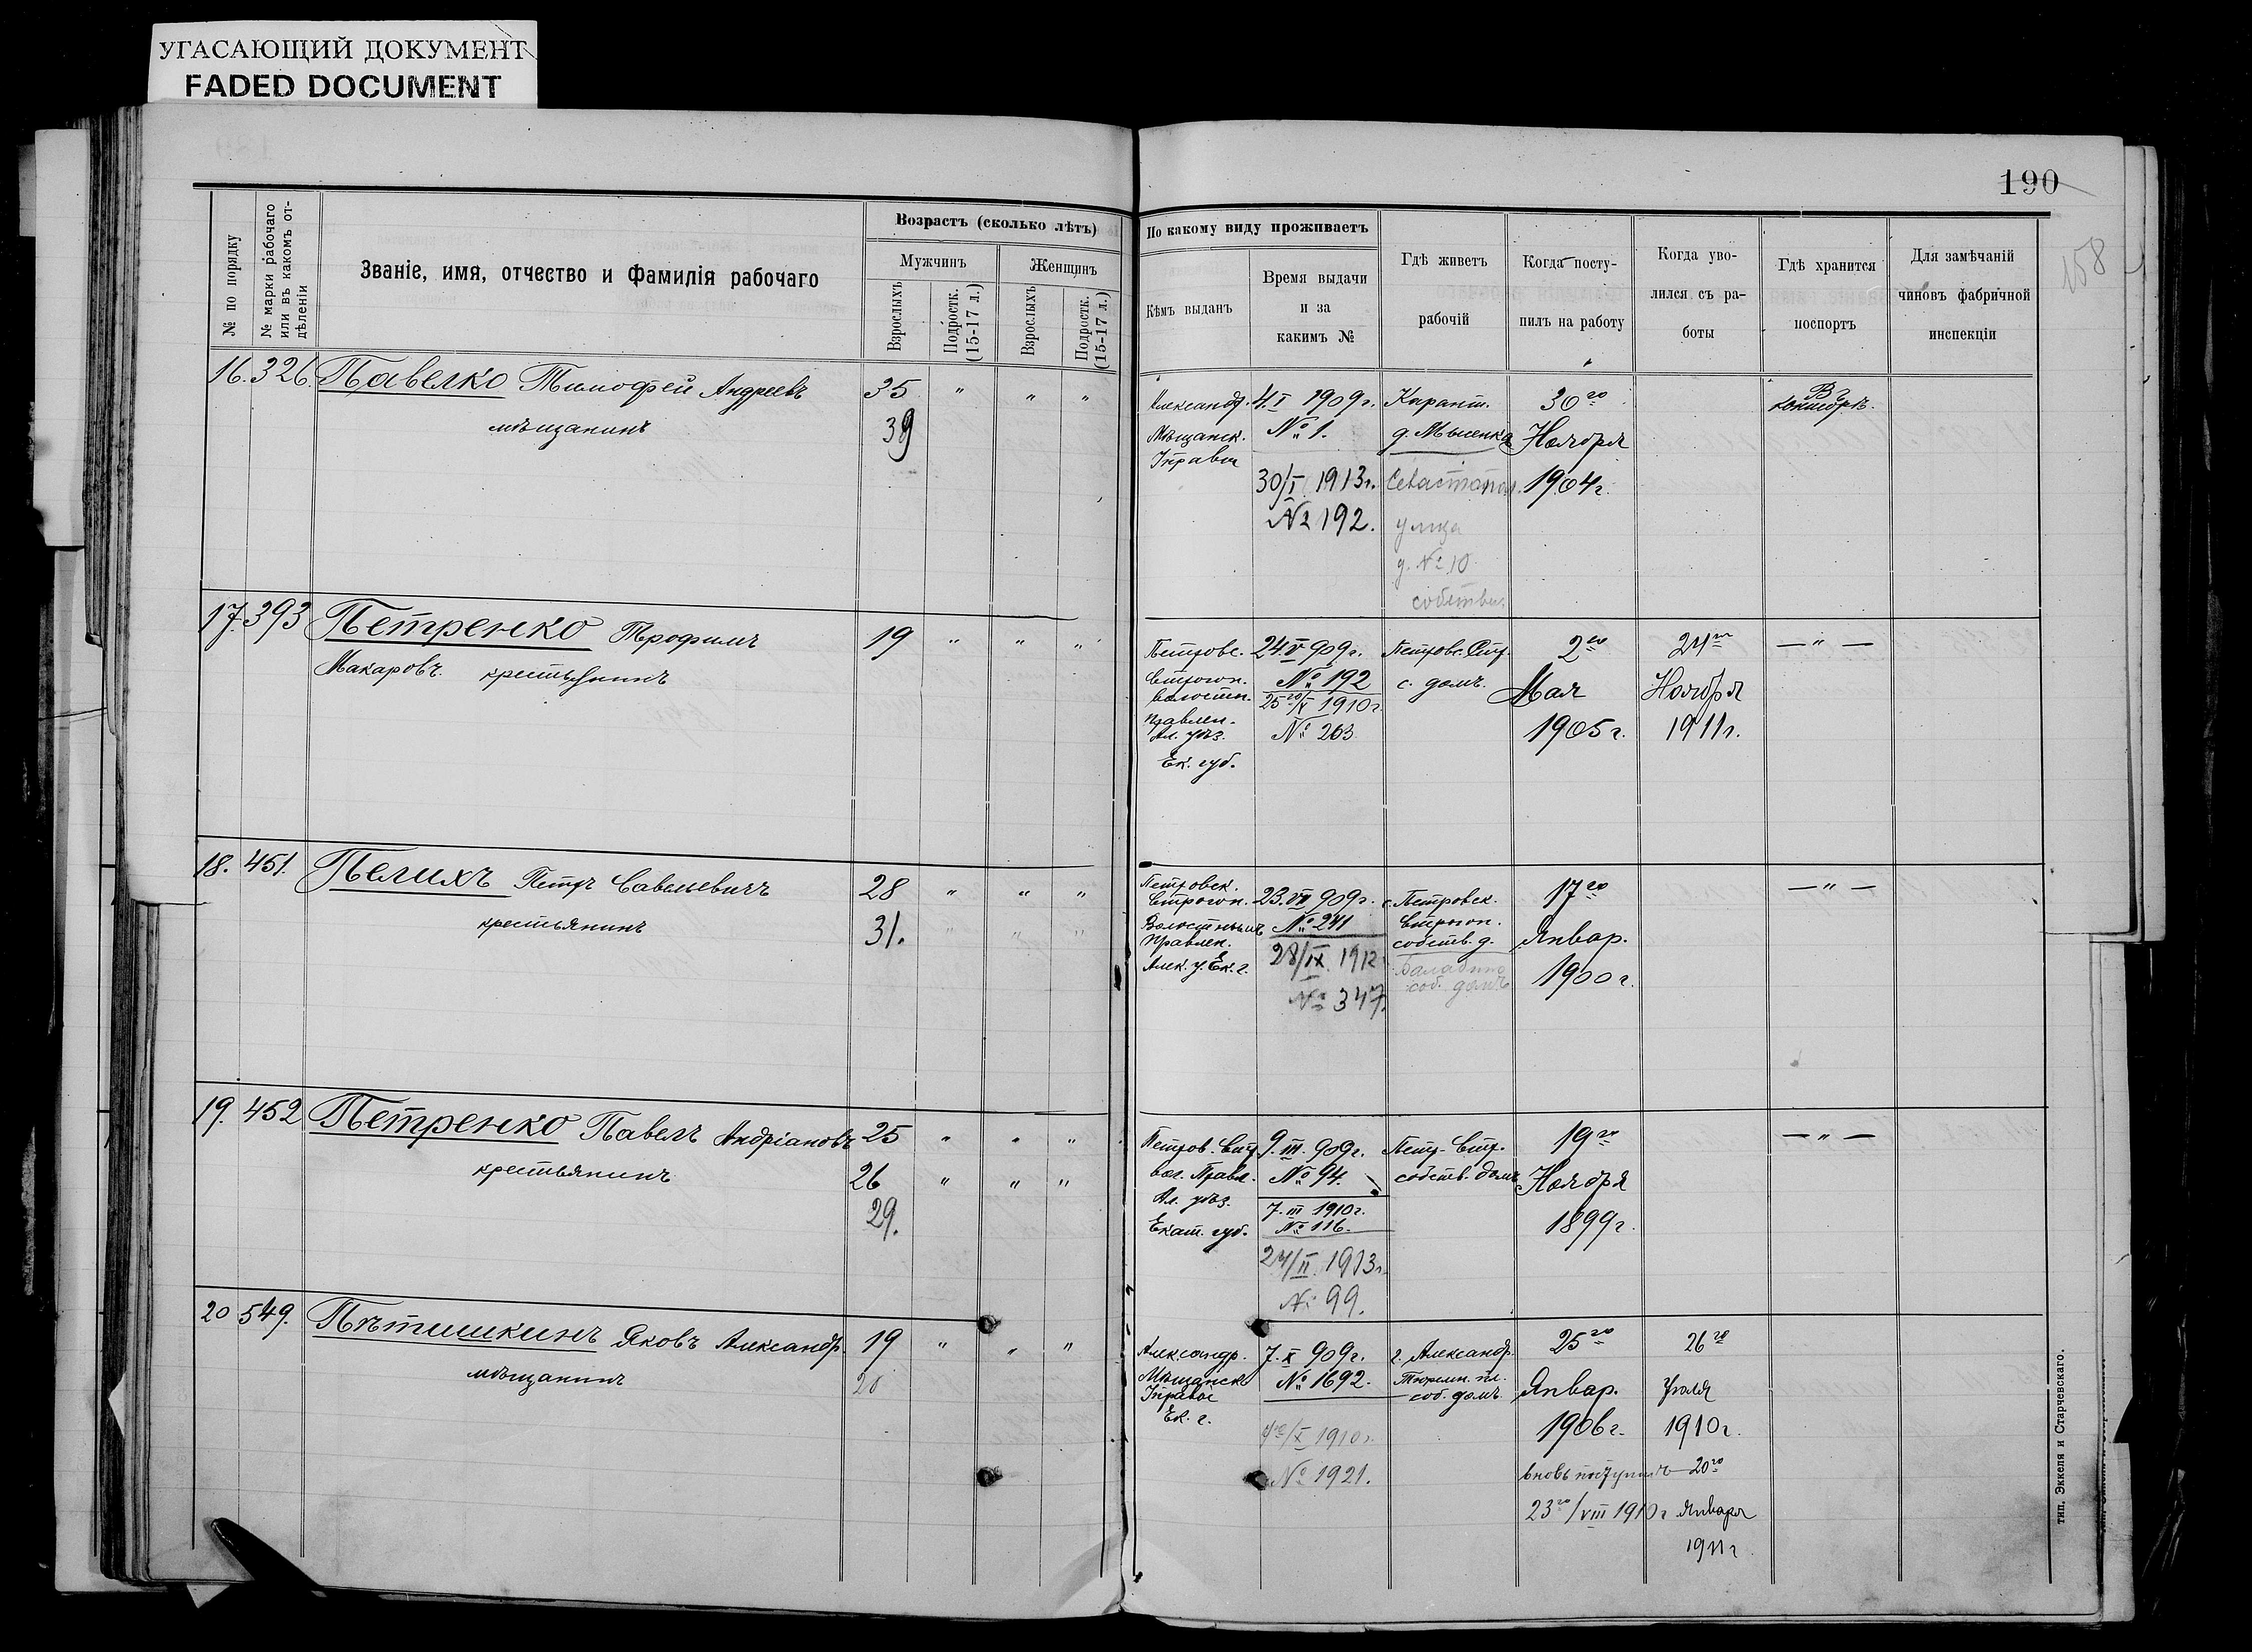 УГАСАЮЩИЙ ДОКУМЕНТ
FADED DOCUMENT
190
158
№ по порядку
№ марки рабочаго
или въ какомъ от-
дѣленіи
Званіе, имя, отчество и фамилія рабочаго
Возрастъ (сколько лѣтъ)
Мужчинъ
Женщинъ
Взрослыхъ
Подростк.
(15-17 л.)
Взрослыхъ
Подростк.
(15-17 л.)
По какому виду проживаетъ
Кѣмъ выданъ
Время выдачи
и за
какимъ №
Гдѣ живетъ
рабочій
Когда посту-
пилъ на работу
Когда уво-
лился съ ра-
боты
Гдѣ хранится
поспортъ
Для замѣчаній
чиновъ фабричной
инспекціи
16. 326. Павелко Тимофей Андреевъ 35 " " "
мѣщанинъ 39
Александр.
Мѣщанск.
Управы
4.I 1909г.
№ 1.
30/I 1913г.
№ 192.
Карант.
д. Мысенка
Севастопол.
улица
д. № 10
собствен.
30го
Ноября
1904г.
В
конторѣ.
17. 393 Петренко Трофимъ 19 " " "
Макаровъ. крестьянинъ
Петровс.
Строгон.
волостн.
Правлен.
Ал. уѣз.
Ек. губ.
24.V 909г.
№ 192
25го/V 1910г.
№ 263
Петровс. Стр.
с. домъ.
2го
Мая
1905г.
24го
Ноября
1911г.
— " —
18. 451. Пелихъ Петръ Савельевичъ 28 " " "
крестьянинъ 31. " " "
Петровск.
Строгон.
Волостнымъ
Правлен.
Алек. у. Ек. г.
23.VII 909г.
№ 241
28/IX. 1912
№ 347.
с. Петровск.
Строгон.
собств. д.
соб. домъ
17го
Январ.
1900г.
— " —
19. 452 Петренко Павелъ Андріановъ 25 " " "
крестьянинъ 26 " " "
29.
Петров. Стр.
вол. Правл.
Ал. уѣз.
Екат. губ.
9.III. 909г.
№ 94.
7.III 1910г.
№ 116.
24/II. 1913г.
№ 99.
Петр. Стр.
собств. домъ
19го
Ноября
1899г.
— " —
20 549. Пѣтишкинъ Яковъ Александр. 19 " " "
мѣщанинъ 20
Александр.
Мѣщанск.
Управой
Ек. г.
7.X 909г.
№ 1692.
1910г.
№ 1921.
г. Александр.
Тюремн. пл.
соб. домъ
25го
Январ.
1906г.
вновь поступилъ
23го/VIII 1910г
26го
Іюля
1910г.
20го
Января
1911г
тип. Эккеля и Старчевскаго.